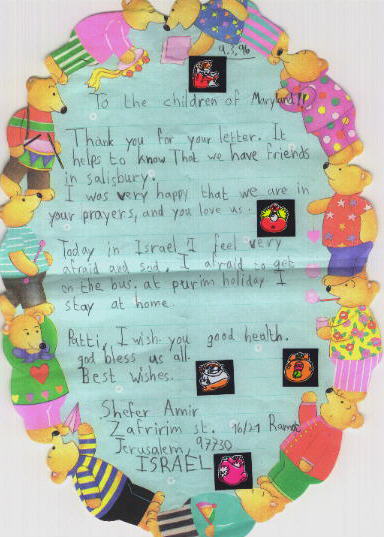 9.3.96
To the children of Maryland!!
Thank you for your letter. It
helps to know That we have friends
in salisbury.
I was very happy that we are in
your prayers, and you love us.
Today in Israel I feel very
afraid and sad. I afraid to get
on the bus. at purim holiday I
stay at home.
Patti, I wish you good health.
god bless us all.
Best wishes.
Shefer Amir
Zafririm st. 96/21 Ramot
Jerusalem, 97730
ISRAEL